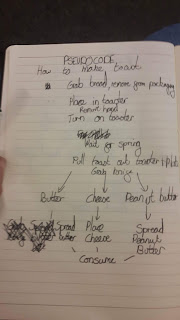 PSEUDOCODE
How to Make Toast
Grab bread, remove from packaging
Place in toaster
Turn on toaster
Wait for spring
Pull toast out toaster + plate
Grab knife
Butter Cheese Peanut butter
Spread butter Place Cheese Spread Peanut Butter
Consume